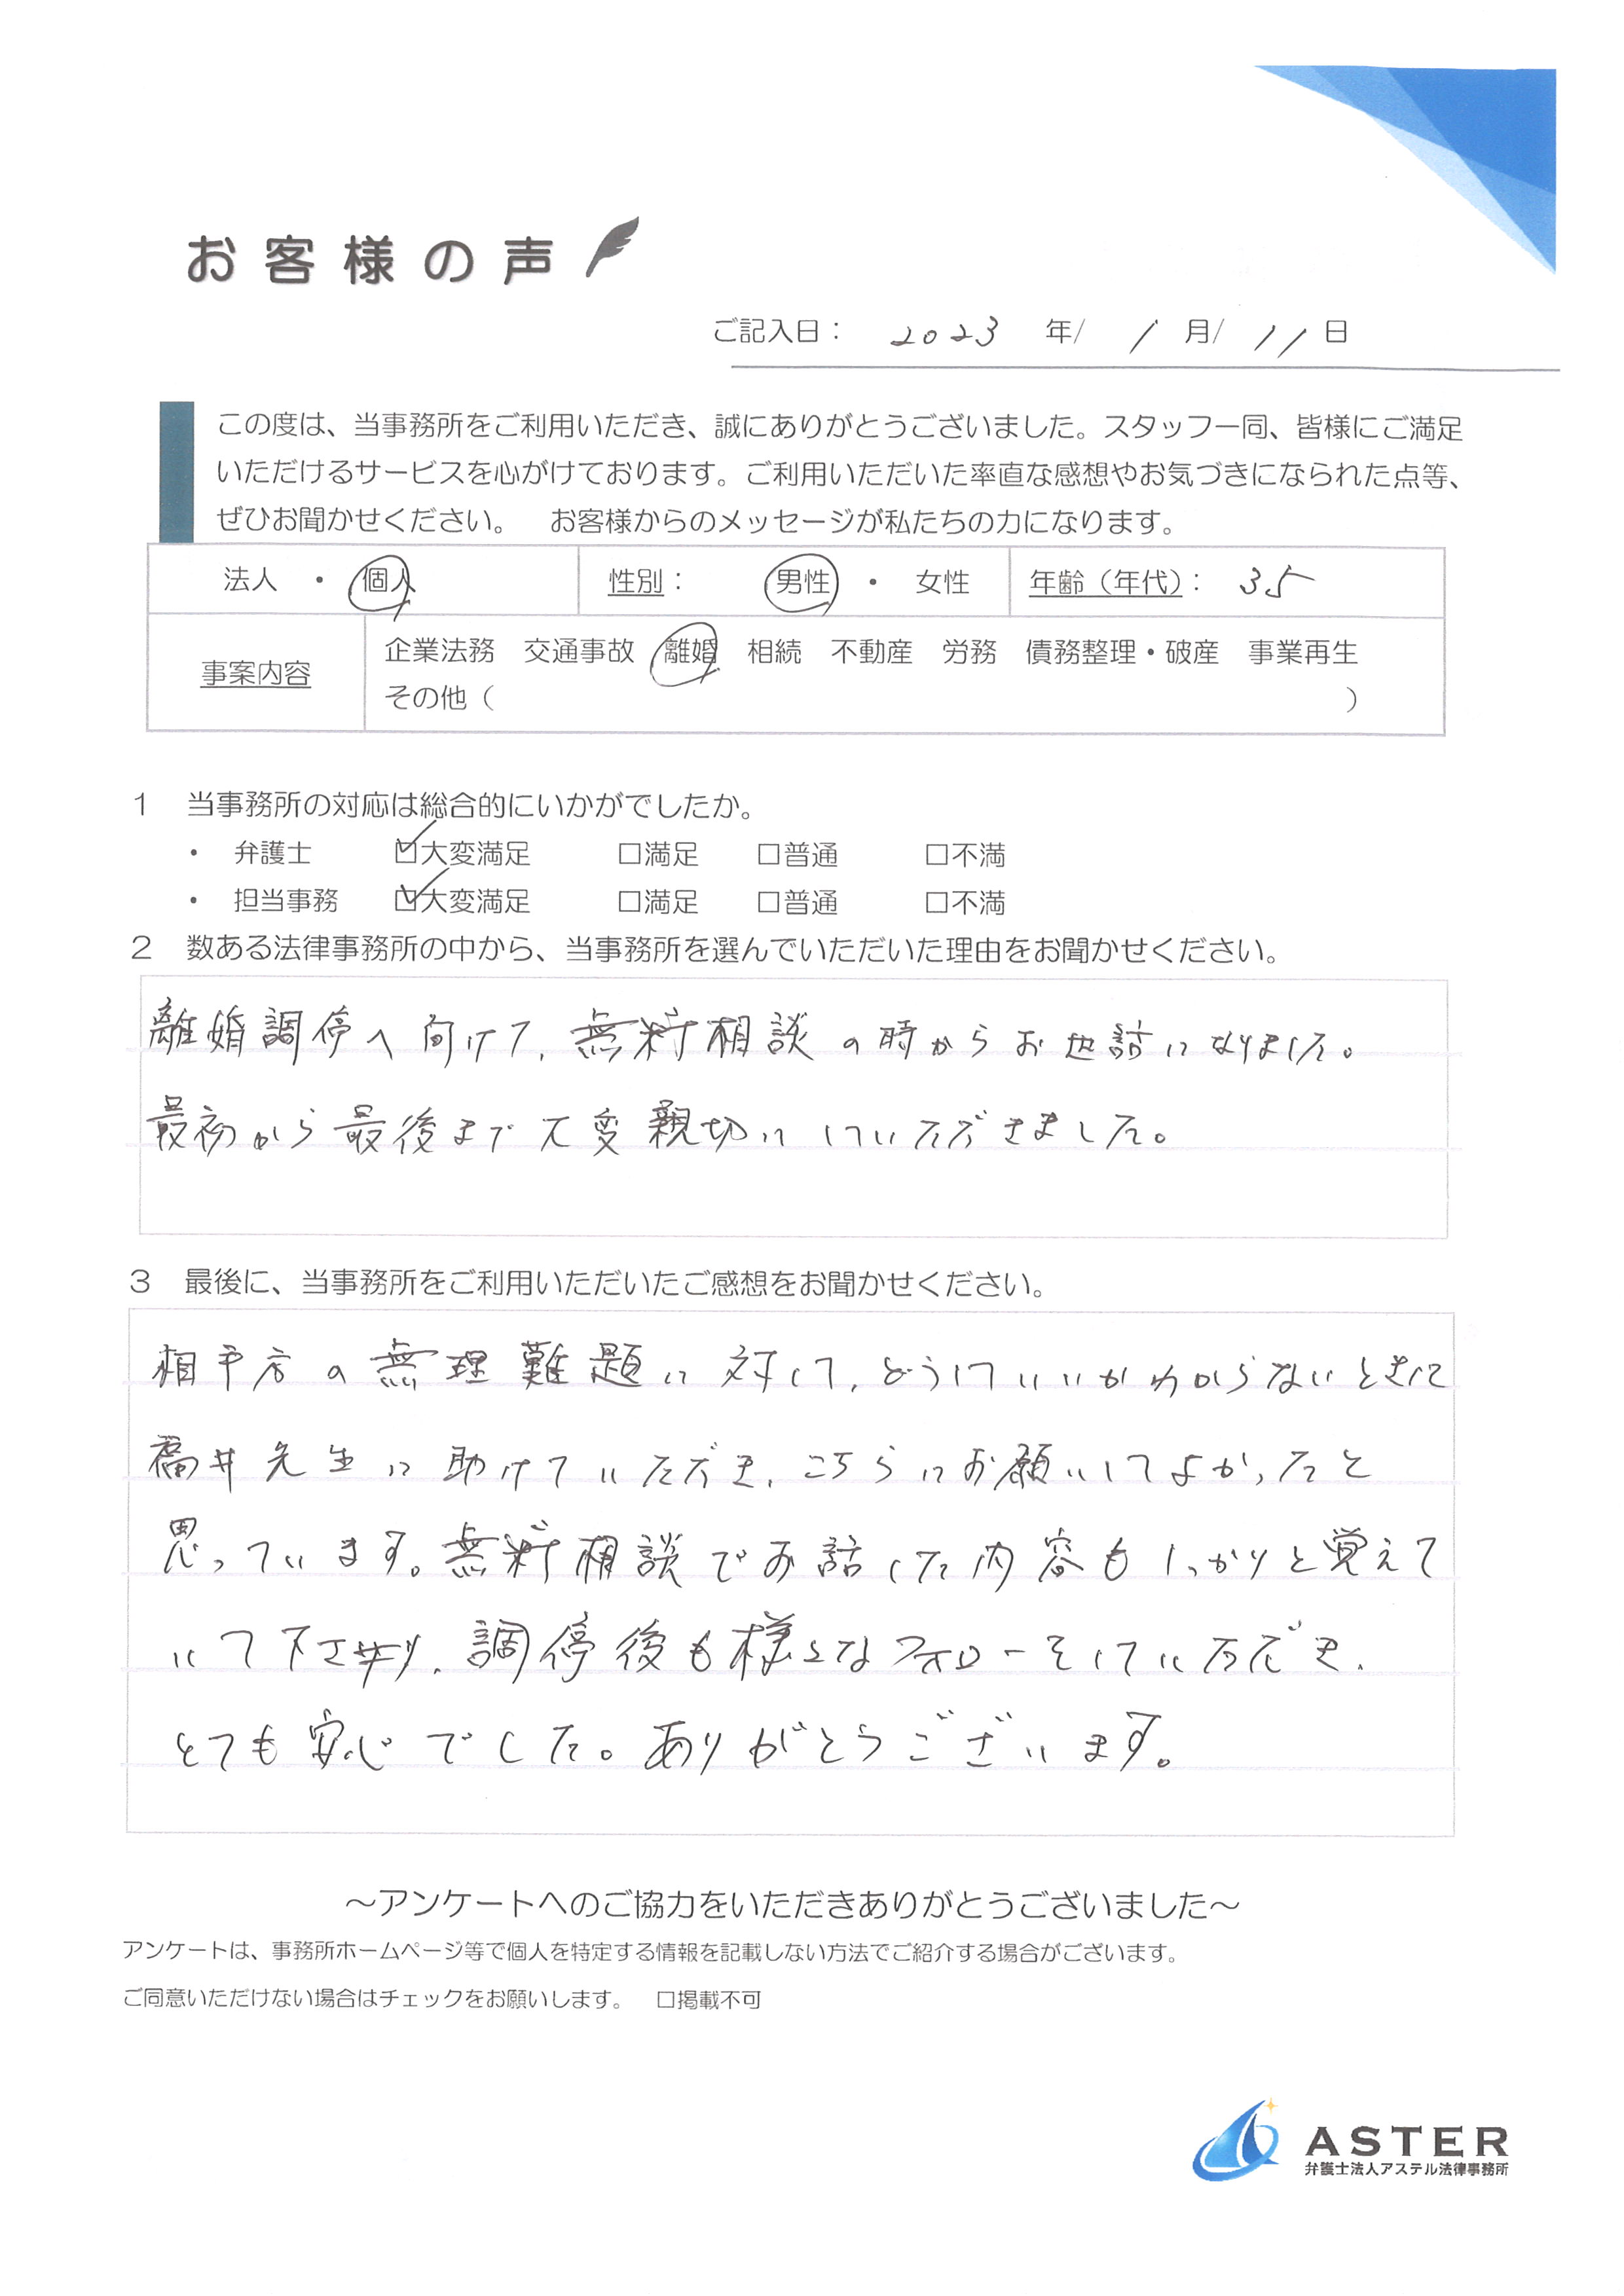 お客様の声
ご記入日： 2023 年/ 1 月/ 11 日
この度は、当事務所をご利用いただき、誠にありがとうございました。スタッフ一同、皆様にご満足
いただけるサービスを心がけております。ご利用いただいた率直な感想やお気づきになられた点等、
ぜひお聞かせください。 お客様からのメッセージが私たちの力になります。
法人 ・ 個人 性別： 男性 ・ 女性 年齢（年代）： 35
事案内容
企業法務 交通事故 離婚 相続 不動産 労務 債務整理・破産 事業再生
その他（ ）
1 当事務所の対応は総合的にいかがでしたか。
・ 弁護士 ☑大変満足 □満足 □普通 □不満
・ 担当事務 ☑大変満足 □満足 □普通 □不満
2 数ある法律事務所の中から、当事務所を選んでいただいた理由をお聞かせください。
離婚調停へ向けて、無料相談の時からお世話になりました。
最初から最後まで大変親切にしていただきました。
3 最後に、当事務所をご利用いただいたご感想をお聞かせください。
相手方の無理難題に対して、どうしていいかわからないときに
福井先生に助けていただき、こちらにお願いしてよかったと
思っています。無料相談でお話した内容もしっかりと覚えて
いて下さり、調停後も様々なフォローをしていただき、
とても安心でした。ありがとうございます。
～アンケートへのご協力をいただきありがとうございました～
アンケートは、事務所ホームページ等で個人を特定する情報を記載しない方法でご紹介する場合がございます。
ご同意いただけない場合はチェックをお願いします。 □掲載不可
ASTER
弁護士法人アステル法律事務所